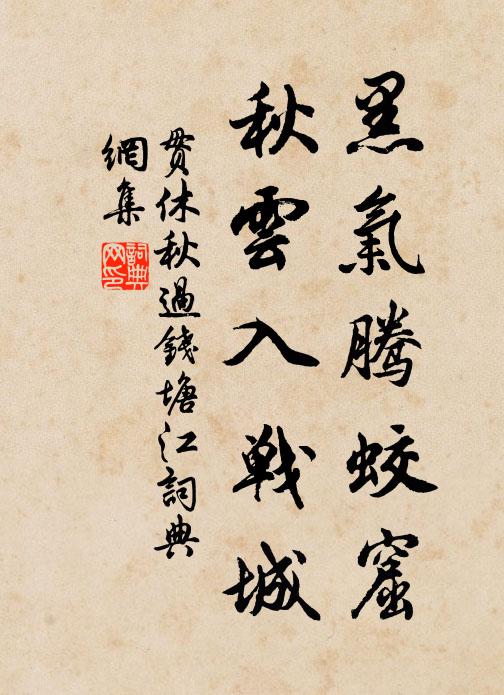 黑氣騰蛟窟
秋雲入戰城
貫休秋過錢塘江詞典
網集
詞典
网印